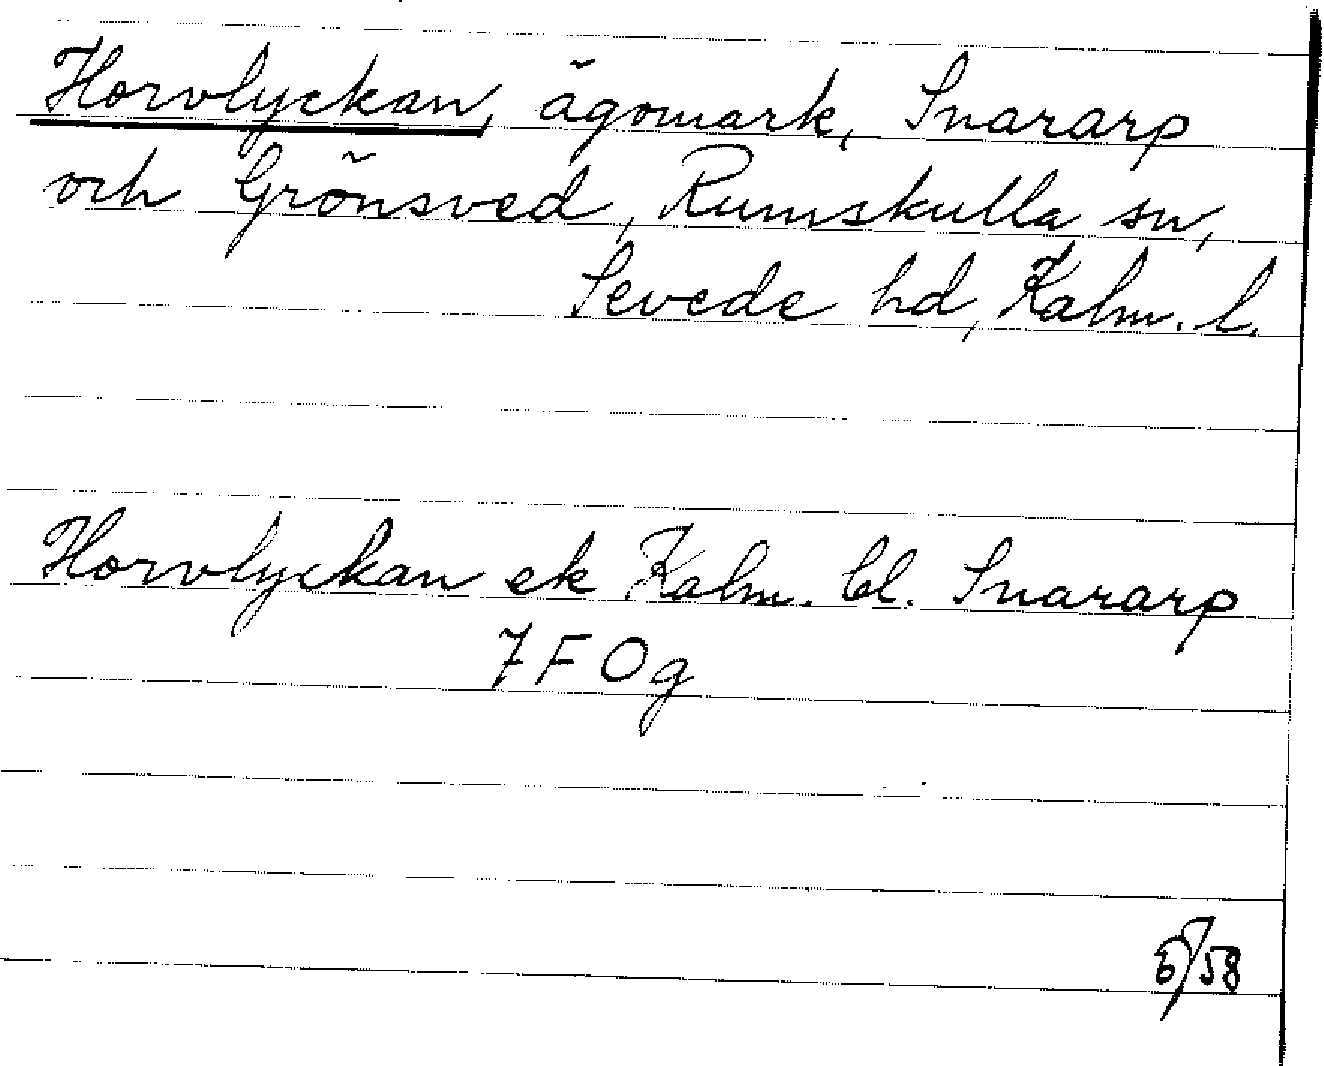 Horvlyckan, ägomark, Snararp
och Grönsved, Rumskulla sn,
Sevede hd, Kalm. l.
Horvlyckan ek Kalm. bl. Snararp
7F0g
5/58